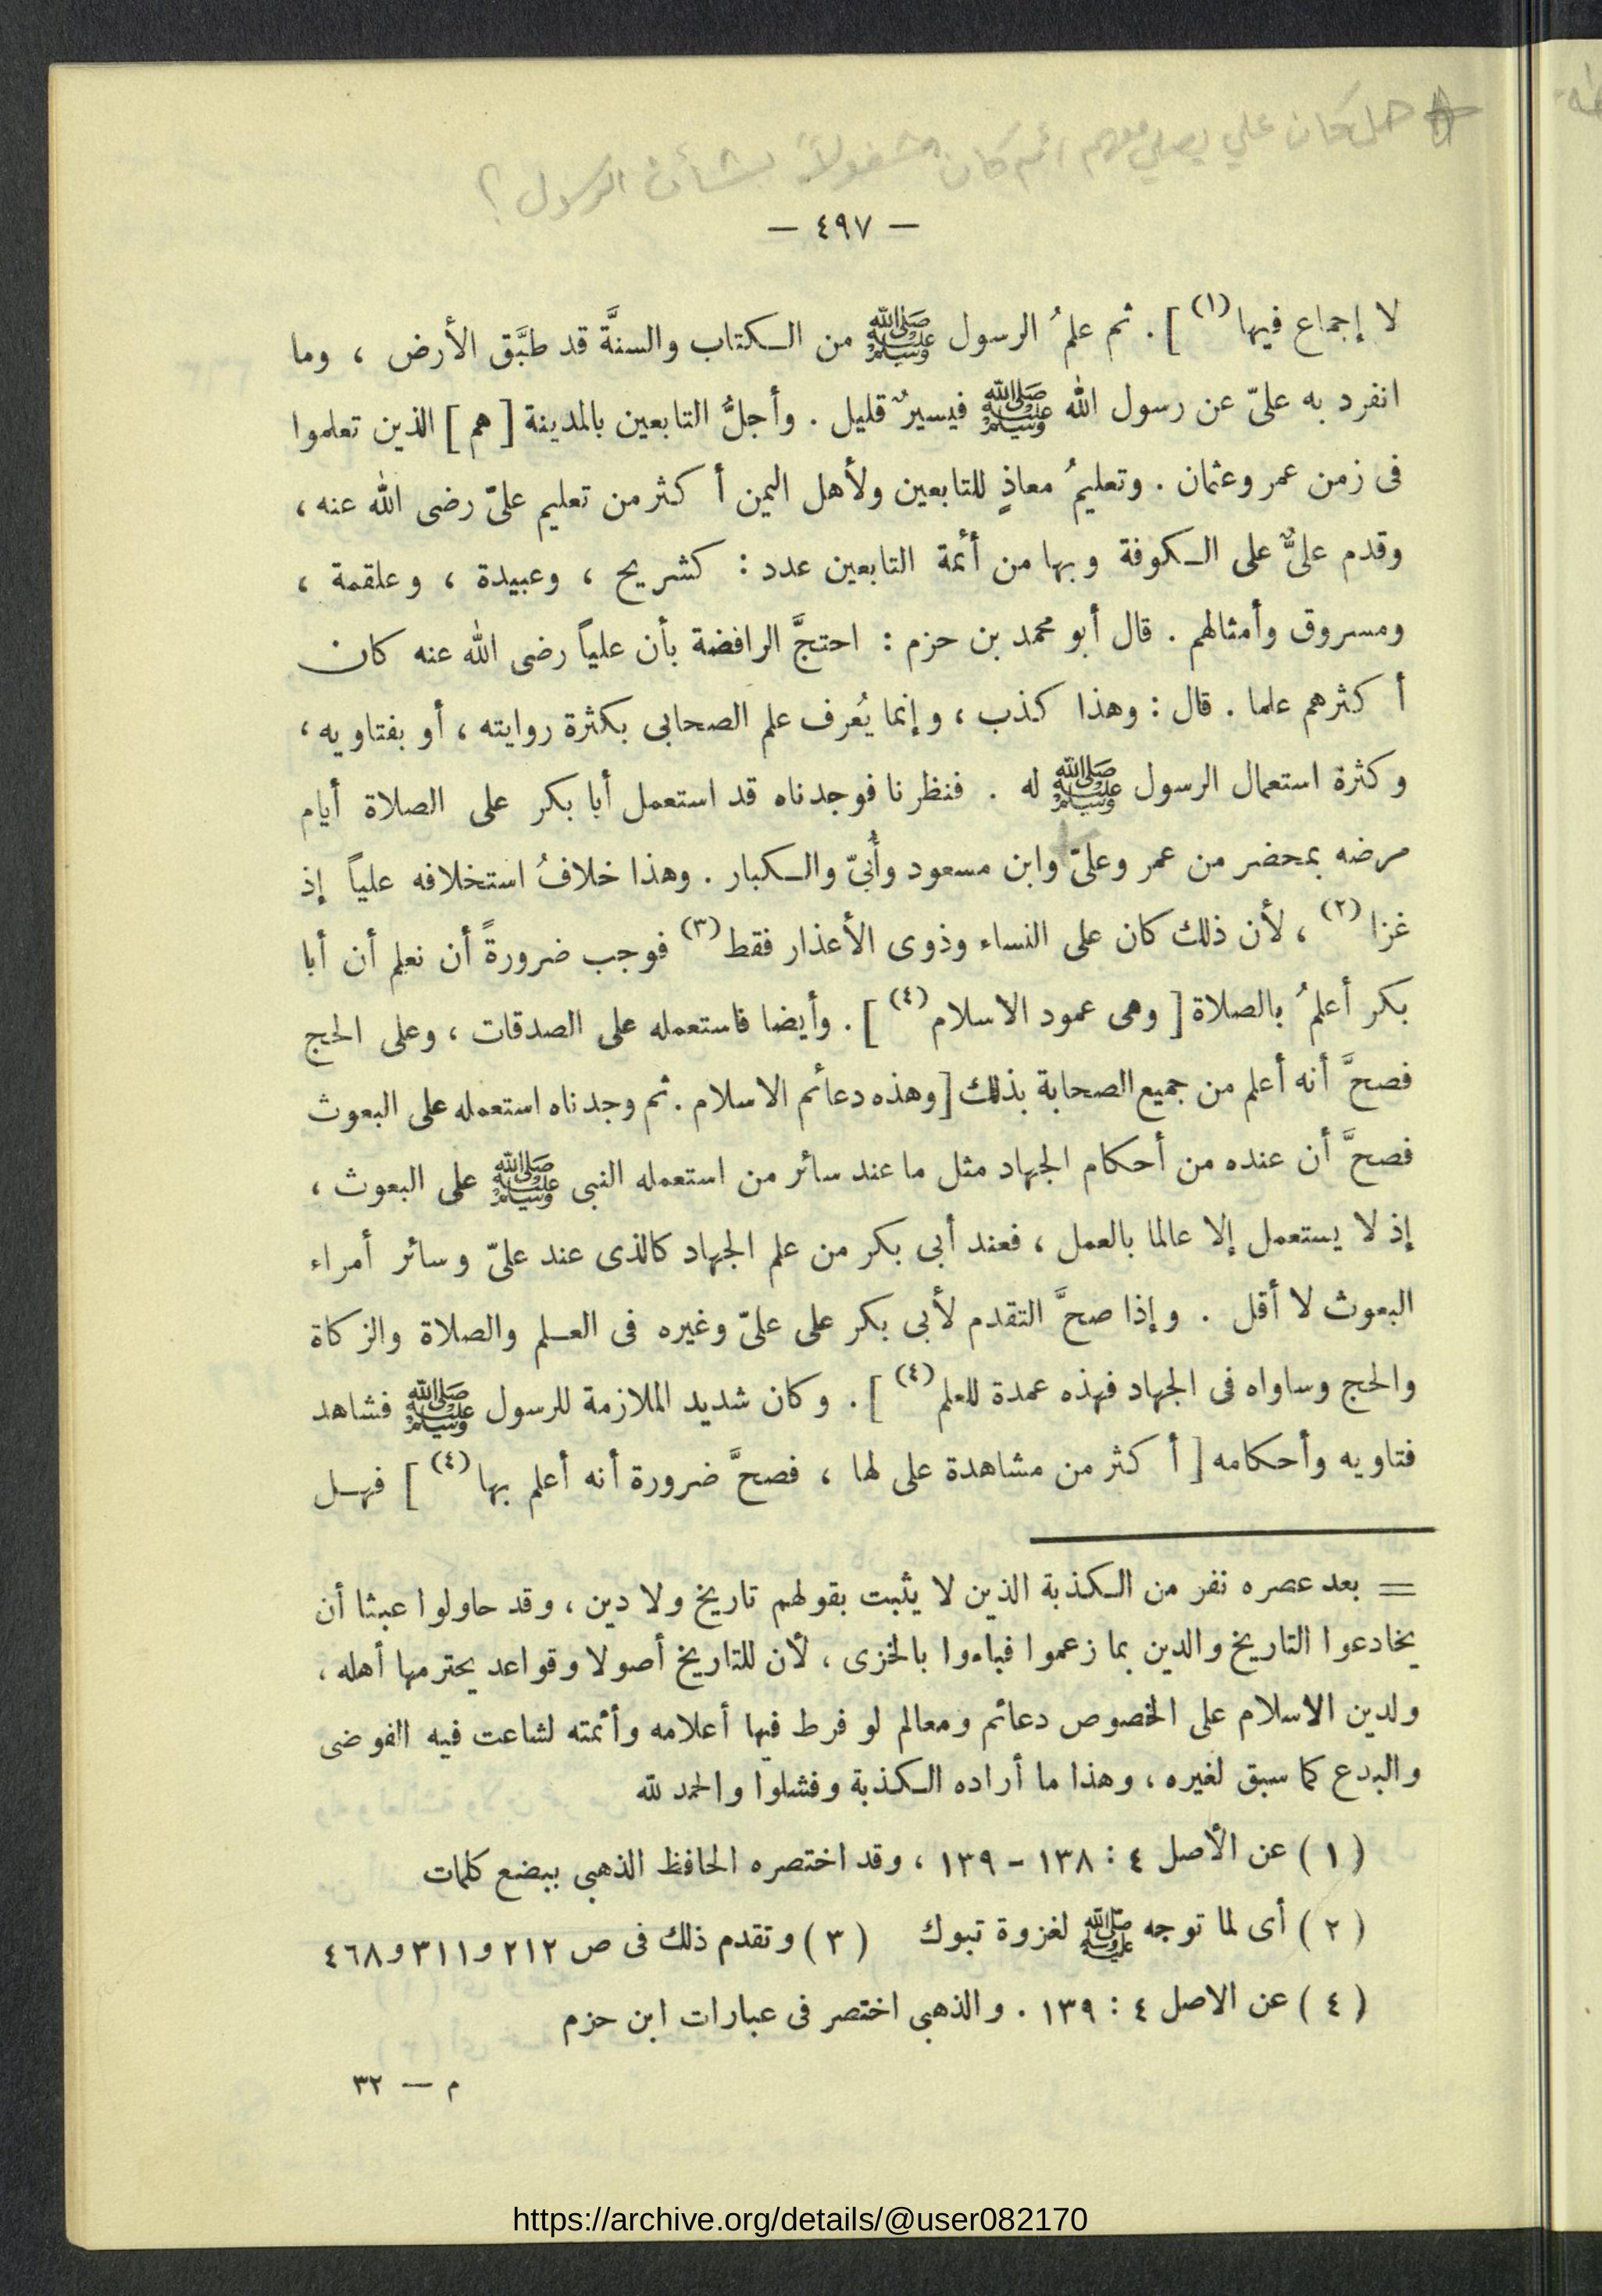 هل كان علي يصلي معهم أم كان مشغولاً بشأن الرسول ؟
— ٤٩٧ —
لا إجماع فيها (١) ] . ثم علمُ الرسول ﷺ من الكتاب والسنَّة قد طبَّق الأرض ، وما
انفرد به علىّ عن رسول الله ﷺ فيسيرٌ قليل . وأجلُّ التابعين بالمدينة [ هم ] الذين تعلموا
فى زمن عمر وعثمان . وتعليمُ معاذٍ للتابعين ولأهل اليمن أكثر من تعليم علىّ رضى الله عنه ،
وقدم علىٌّ على الكوفة وبها من أئمة التابعين عدد : كشريح ، وعبيدة ، وعلقمة ،
ومسروق وأمثالهم . قال أبو محمد بن حزم : احتجَّ الرافضة بأن علياً رضى الله عنه كان
أكثرهم علما . قال : وهذا كذب ، وإنما يُعرف علم الصحابى بكثرة روايته ، أو بفتاويه ،
وكثرة استعمال الرسول ﷺ له . فنظرنا فوجدناه قد استعمل أبا بكر على الصلاة أيام
مرضه بمحضر من عمر وعلىّ وابن مسعود وأُبىّ والكبار . وهذا خلافُ استخلافه علياً إذ
غزا (٢) ، لأن ذلك كان على النساء وذوى الأعذار فقط (٣) فوجب ضرورةً أن نعلم أن أبا
بكر أعلمُ بالصلاة [ وهى عمود الاسلام (٤) ] . وأيضا فاستعمله على الصدقات ، وعلى الحج
فصحَّ أنه أعلم من جميع الصحابة بذلك [ وهذه دعائم الاسلام . ثم وجدناه استعمله على البعوث
فصحَّ أن عنده من أحكام الجهاد مثل ما عند سائر من استعمله النبى ﷺ على البعوث ،
إذ لا يستعمل إلا عالما بالعمل ، فعند أبى بكر من علم الجهاد كالذى عند علىّ وسائر أمراء
البعوث لا أقل . وإذا صحَّ التقدم لأبى بكر على علىّ وغيره فى العلم والصلاة والزكاة
والحج وساواه فى الجهاد فهذه عمدة للعلم (٤) ] . وكان شديد الملازمة للرسول ﷺ فشاهد
فتاويه وأحكامه [ أكثر من مشاهدة على لها ، فصحَّ ضرورة أنه أعلم بها (٤) ] فهل
= بعد عصره نفر من الكذبة الذين لا يثبت بقولهم تاريخ ولا دين ، وقد حاولوا عبثا أن
يخادعوا التاريخ والدين بما زعموا فباءوا بالخزى ، لأن للتاريخ أصولا وقواعد يحترمها أهله ،
ولدين الاسلام على الخصوص دعائم ومعالم لو فرط فيها أعلامه وأئمته لشاعت فيه الفوضى
والبدع كما سبق لغيره ، وهذا ما أراده الكذبة وفشلوا والحمد لله
( ١ ) عن الأصل ٤ : ١٣٨ - ١٣٩ ، وقد اختصره الحافظ الذهبى ببضع كلمات
( ٢ ) أى لما توجه ﷺ لغزوة تبوك ( ٣ ) وتقدم ذلك فى ص ٢١٢ و٣١١ و٤٦٨
( ٤ ) عن الاصل ٤ : ١٣٩ . والذهبى اختصر فى عبارات ابن حزم
م — ٣٢
https://archive.org/details/@user082170